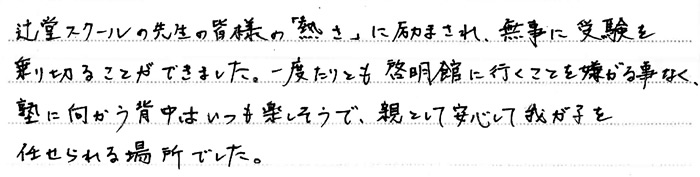 辻堂スクールの先生の皆様の「熱さ」に励まされ、無事に受験を
乗り切ることができました。一度たりとも啓明館に行くことを嫌がる事なく、
塾に向かう背中はいつも楽しそうで、親として安心して我が子を
任せられる場所でした。